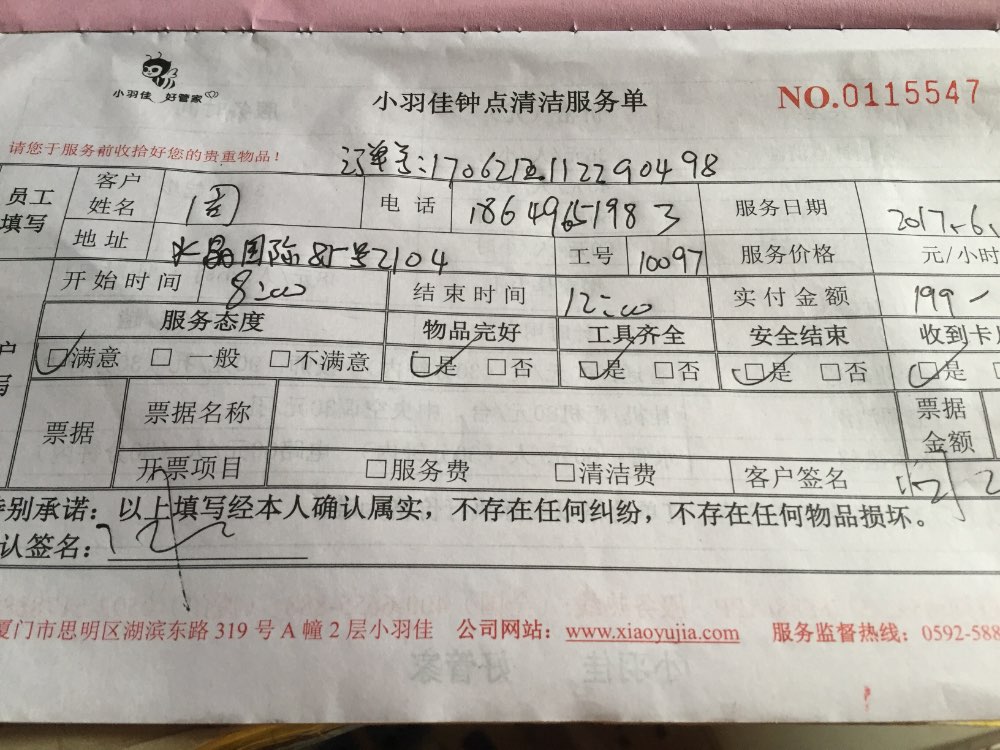 小羽佳 好管家
小羽佳钟点清洁服务单
NO.0115547
请您于服务前收拾好您的贵重物品！
员工填写 客户姓名 周 电话 18649651983 服务日期 2017.6.
地址 水晶国际 号2104 工号 10097 服务价格 元/小时
开始时间 8:00 结束时间 12:00 实付金额 199
服务态度 物品完好 工具齐全 安全结束 收到卡
□满意 □一般 □不满意 □是 □否 □是 □否 □是 □否 □是
票据 票据名称 票据金额
开票项目 □服务费 □清洁费 客户签名
特别承诺：以上填写经本人确认属实，不存在任何纠纷，不存在任何物品损坏。
认签名：
厦门市思明区湖滨东路 319 号 A 幢 2 层小羽佳 公司网站：www.xiaoyujia.com 服务监督热线：0592-588